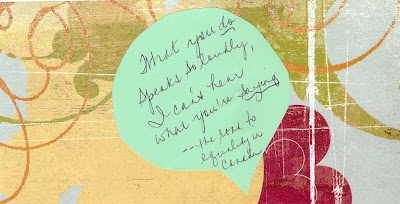 What you do
Speaks so loudly,
I can't hear
what you're saying
-- The road to
equality in
Canada